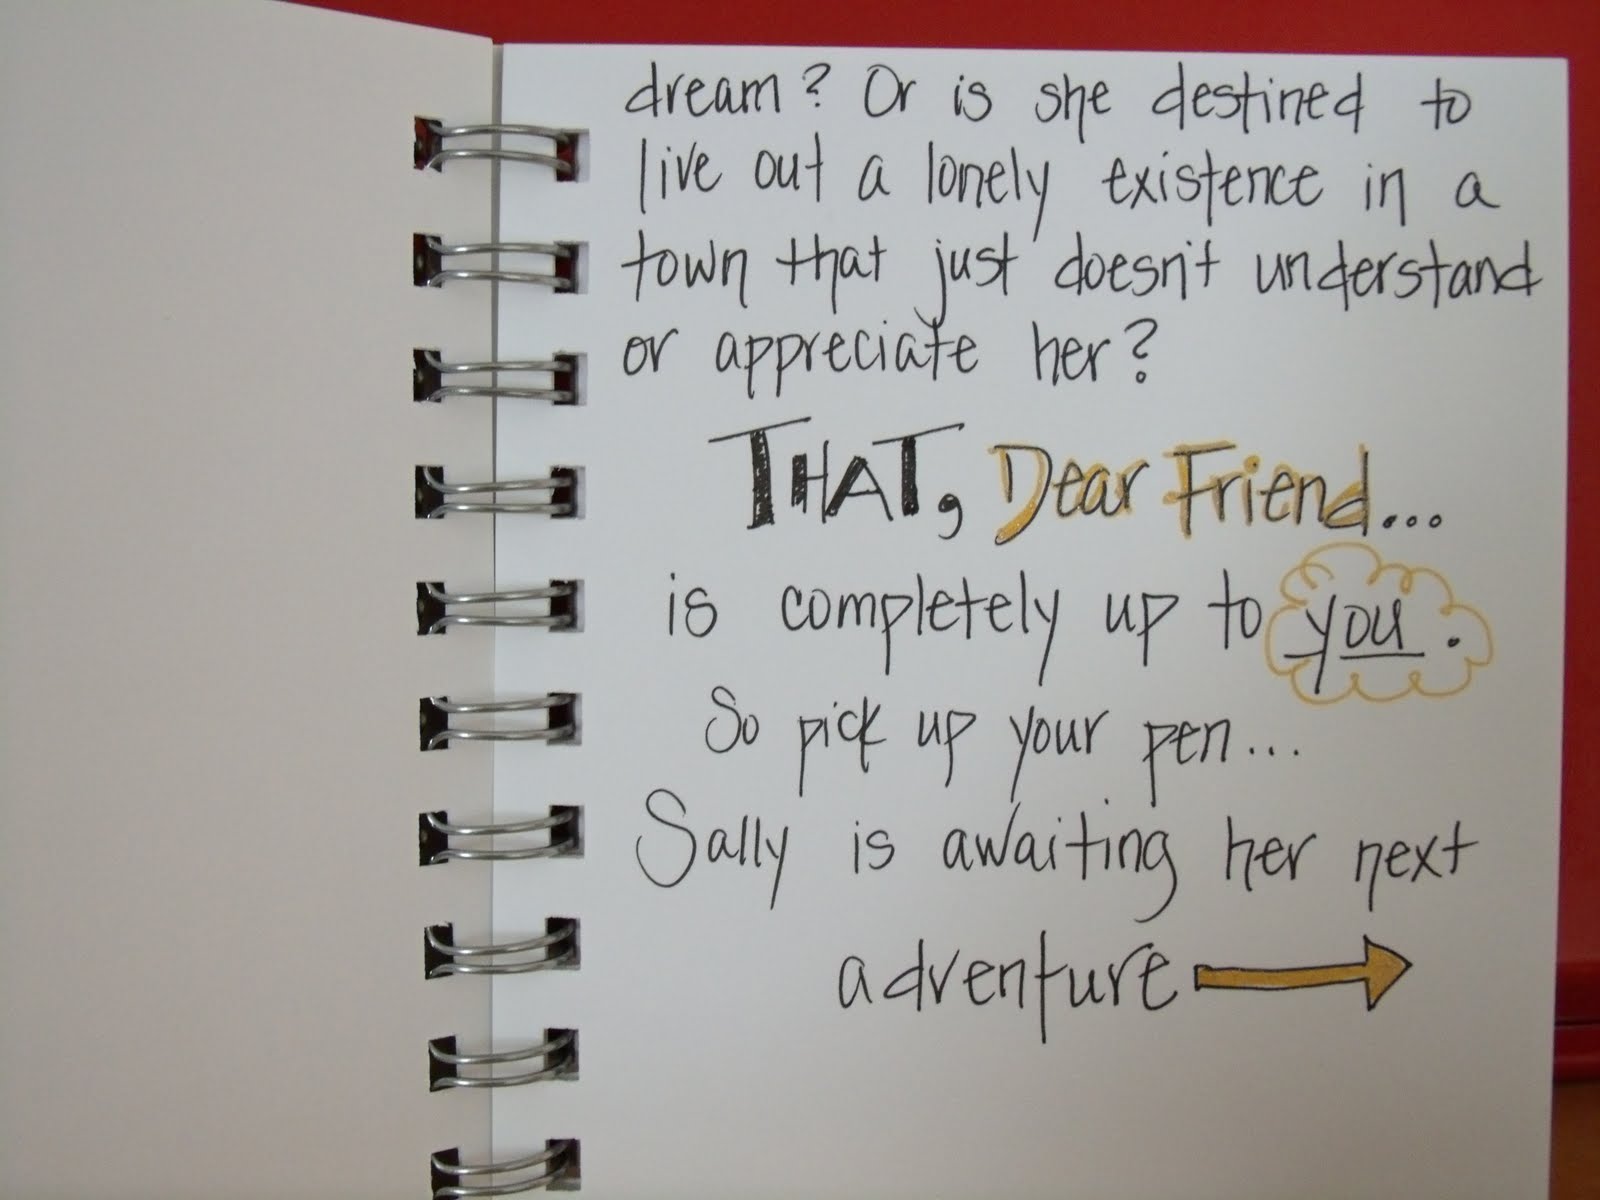 dream? Or is she destined to
live out a lonely existence in a
town that just doesn't understand
or appreciate her?
THAT, Dear Friend...
is completely up to you.
So pick up your pen...
Sally is awaiting her next
adventure